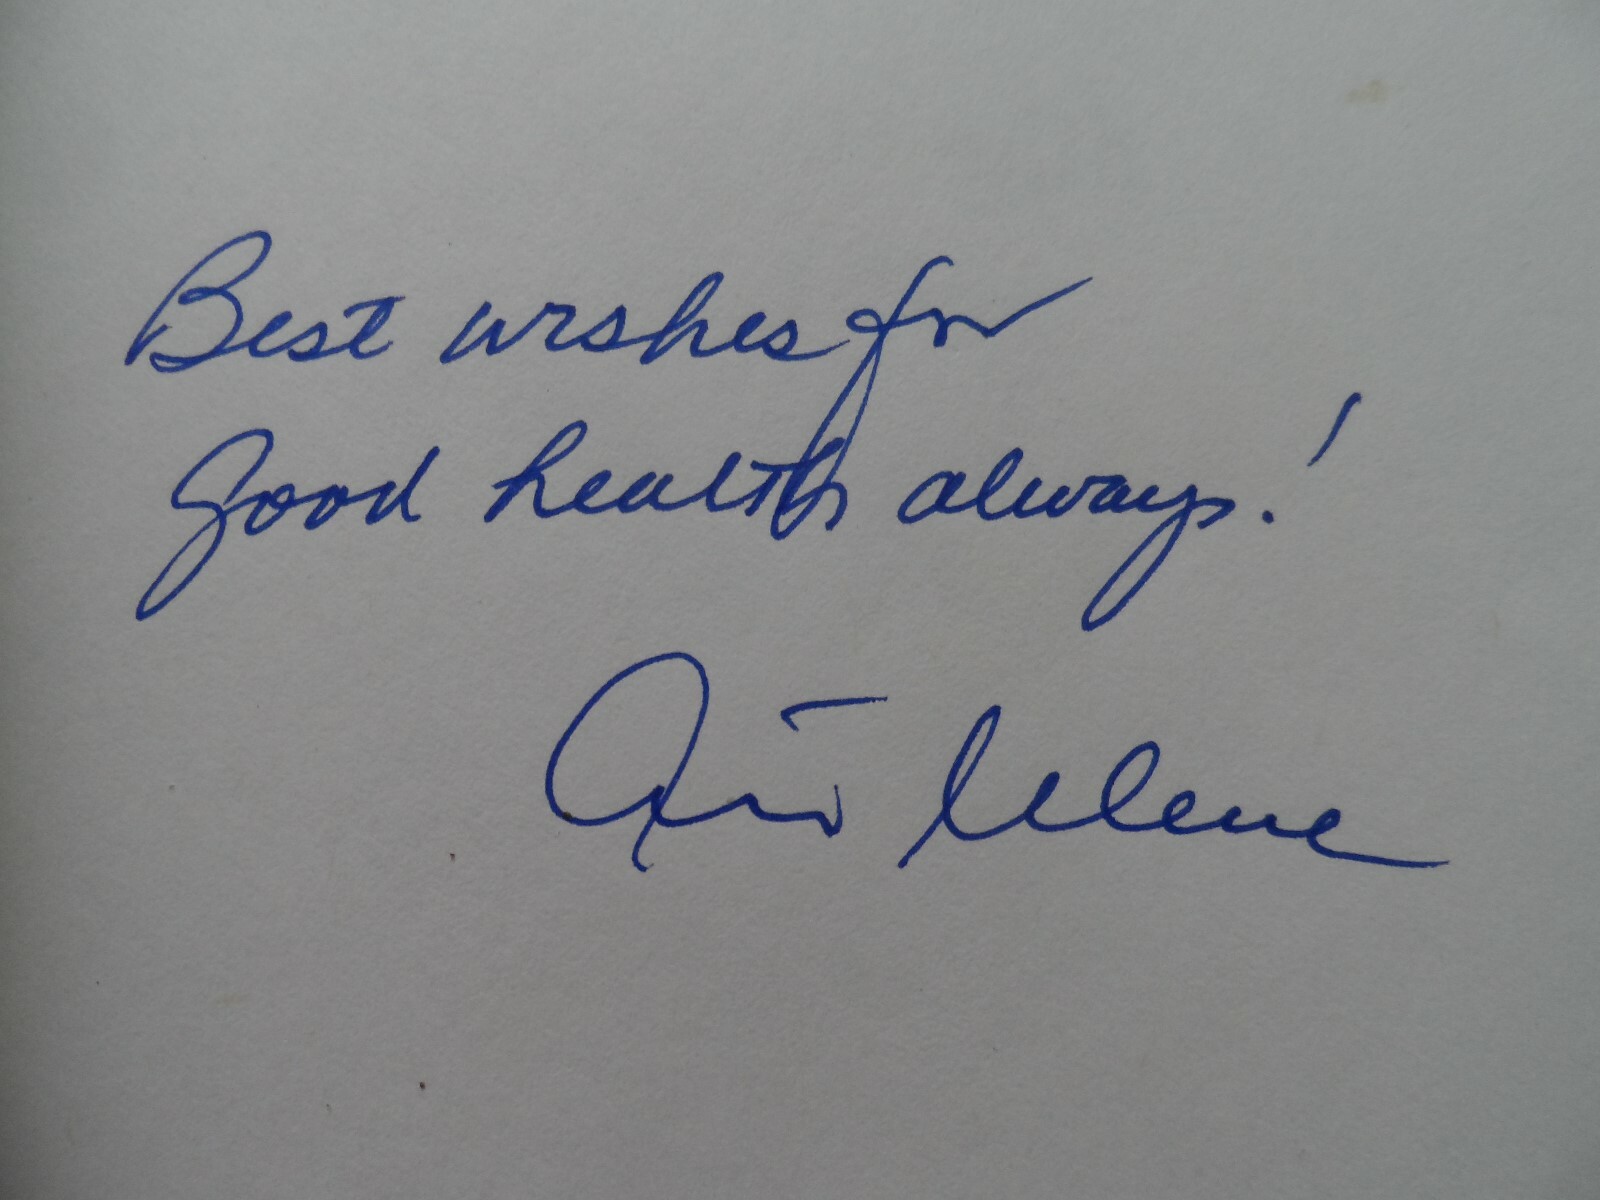 Best wishes for
Good health always!